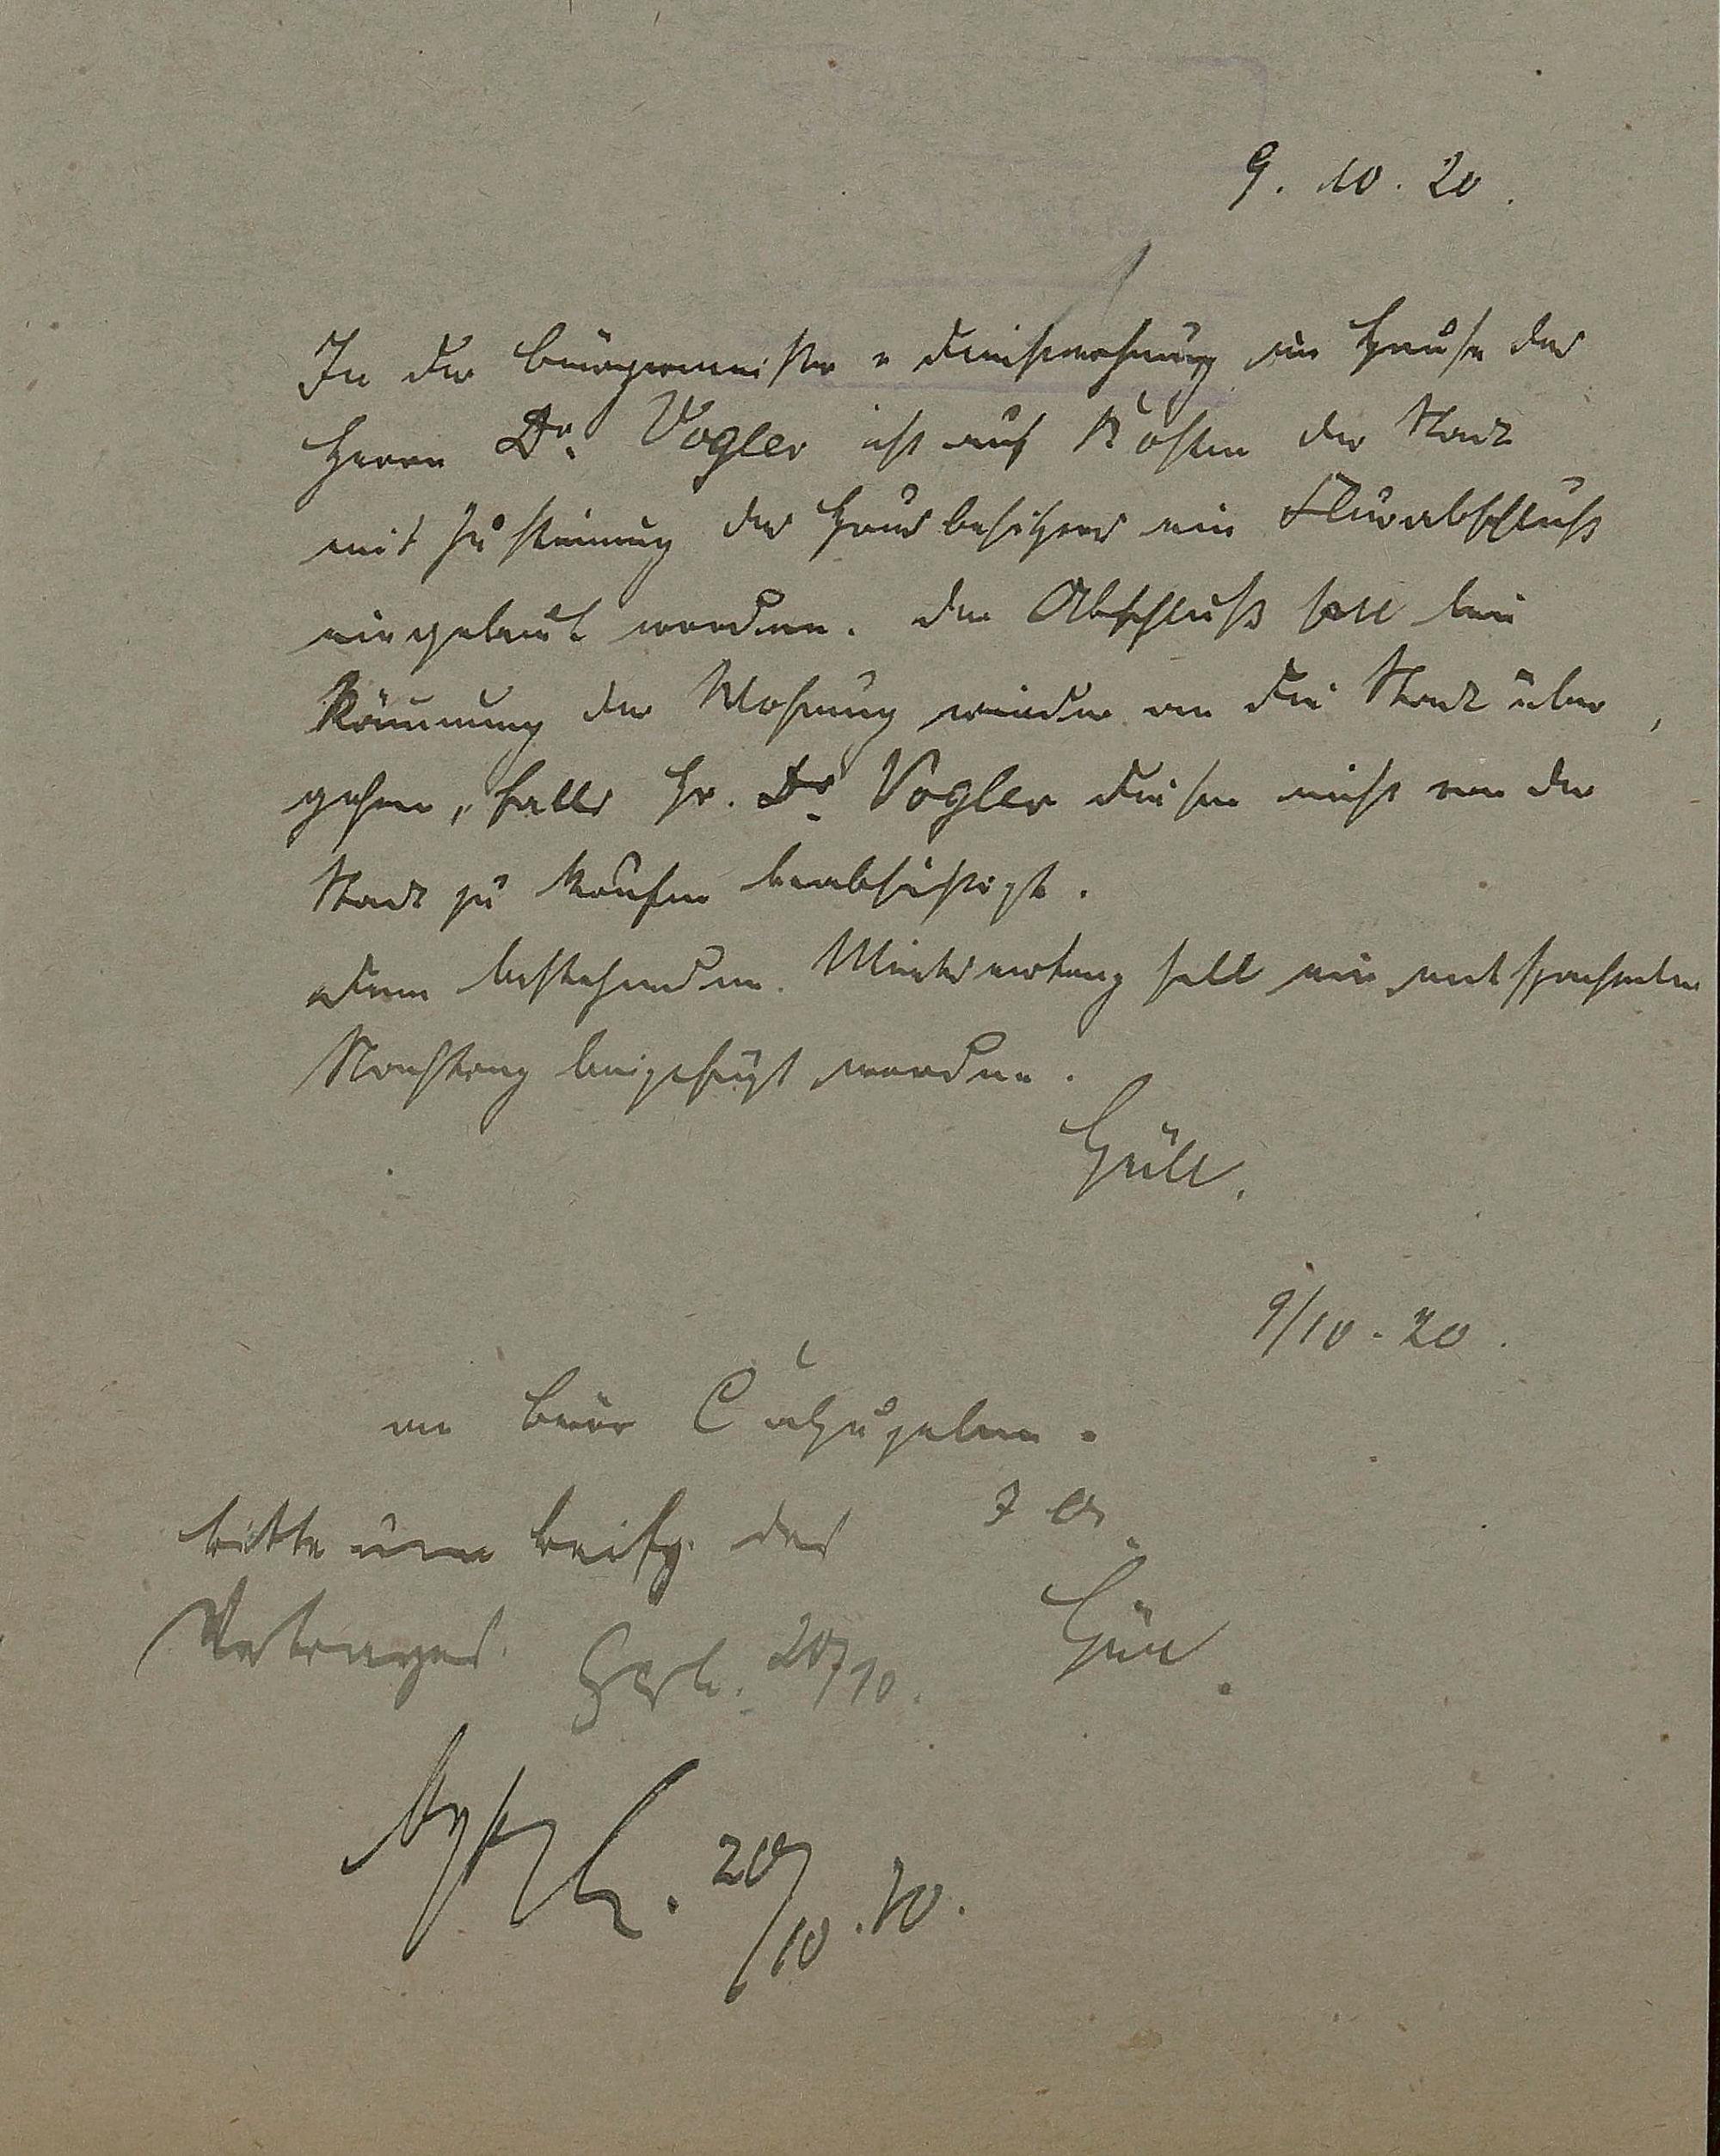 9. 10. 20.
In der Bürgermeister-Dienstwohnung im Hause des
Herrn Dr. Vogler ist auf Kosten der Stadt
mit Zustimmung des Hausbesitzers ein Flurabschluß
eingebaut worden. Der Abschluß soll bei
Räumung der Wohnung wieder an die Stadt über,
gehen, falls Hr. Dr. Vogler diesen nicht von der
Stadt zu kaufen beabsichtigt.
Dem bestehenden Mietsvertrag soll ein entsprechender
Nachtrag beigefügt werden.
Güll.
9/10. 20.
an Büro C abzugeben.
bitte um Beifg. des
Vertrages 20/10.
Güll.
20/10. 20.